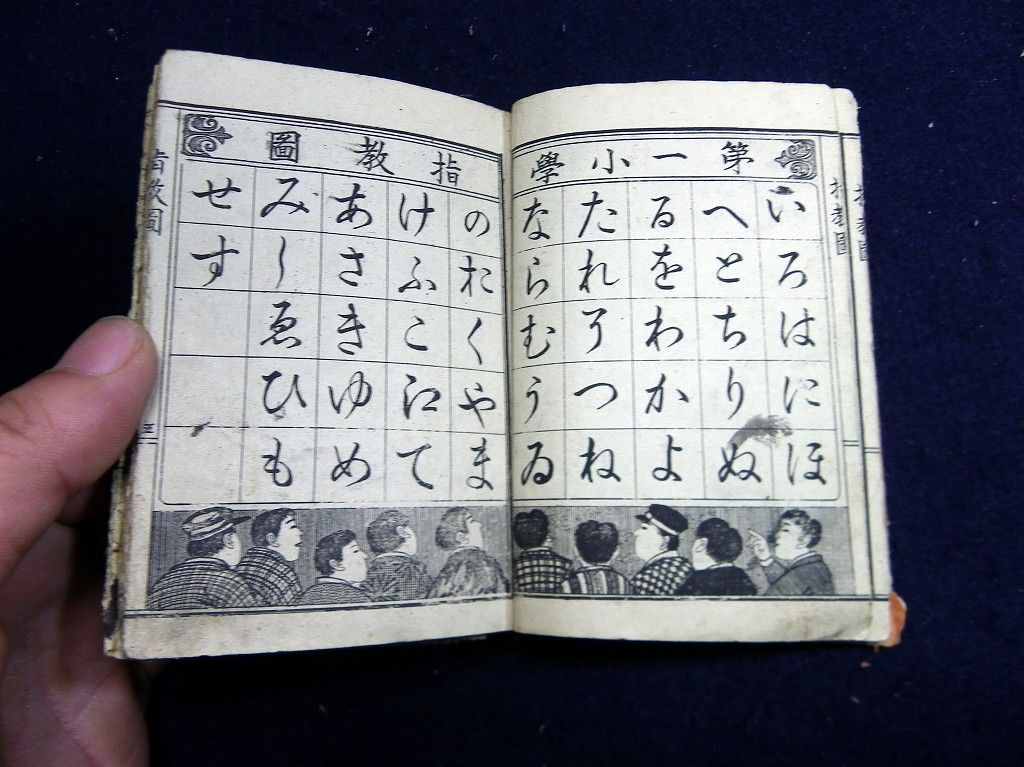 指教圖
指教圖
第一小學
いろはにほ
へとちりぬ
るをわかよ
たれそつね
ならむうゐ
指教圖
のおくやま
けふこ江て
あさきゆめ
みしゑひも
せす
指教圖